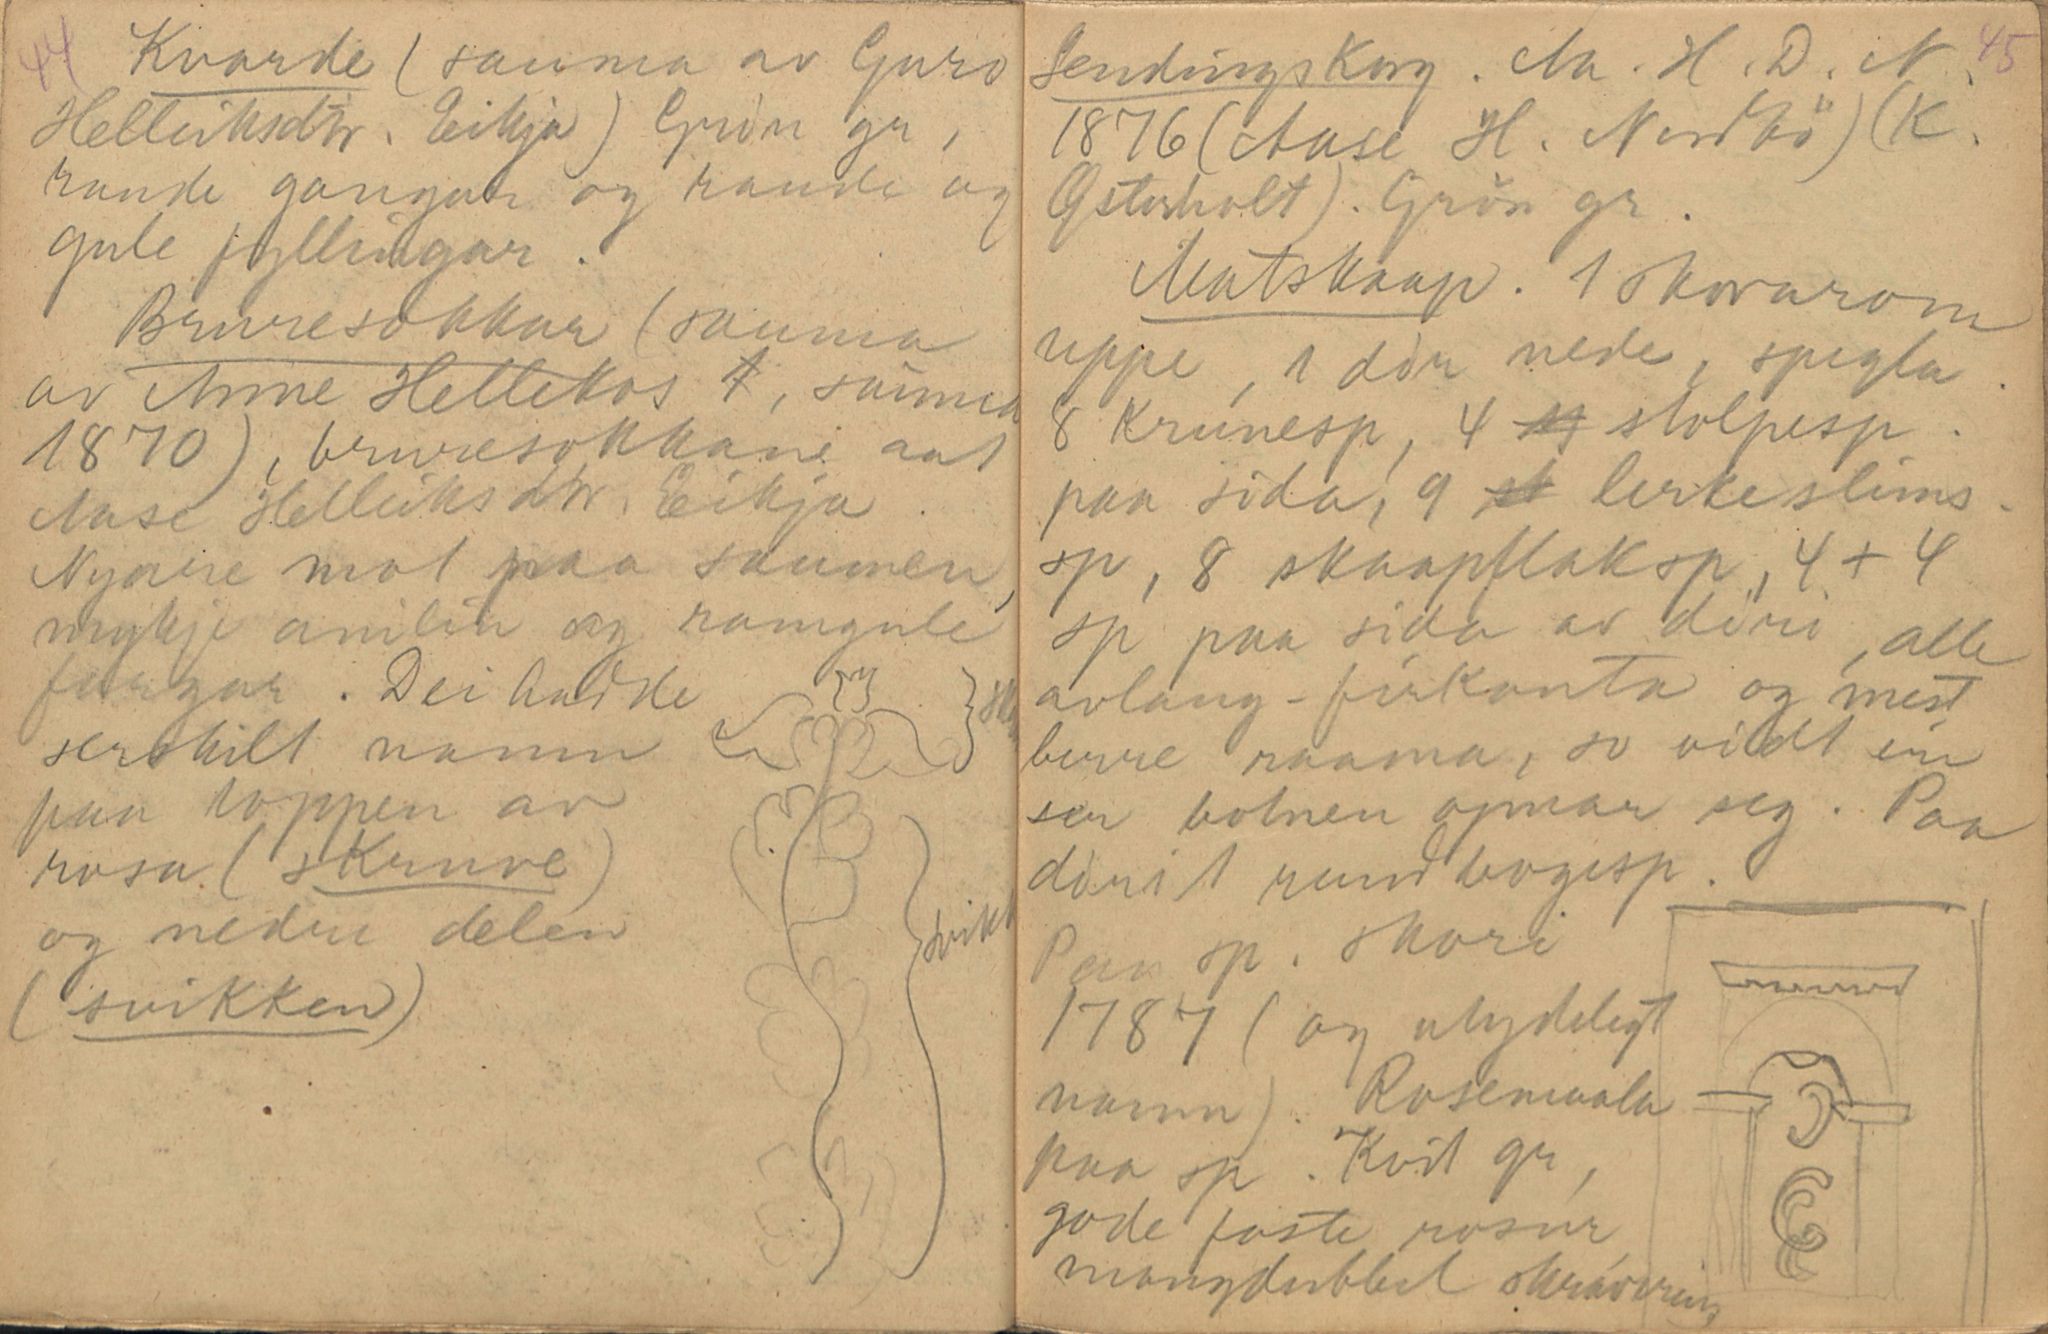 44
Kvarde (sauma av Guro
Helleiksdtr. Eikja) Grön gr,
raude gangar og raude og
gule fyllingar.
Bruresokkar (sauma
av Anne Hellekos 1, sauma
1870), bruresokkane aat
Aase Helleiksdtr. Eikja.
Nyarre mot paa saumen,
mykje anilin og ramgule
fargar. Dei hadde
serskilt namn
paa toppen av
rosa (skruve)
og nedre delen
(svikken)
svikk
45
Sendingskorg. Aa. H. D. N.
1876 (Aase H. Nordbö) (K.
Østerholt). Grön gr.
Matskaap. 1 skovarom
uppe, 1 dör nede, spegla.
8 krunesp, 4 stolpesp.
paa sida, 9 lerkeslims-
sp, 8 skaapflaksp, 4 + 4
sp paa sida av döri, alle
avlang-firkanta og mest
berre raama, so vidt ein
ser botnen opnar seg. Paa
döri 1 rundbogesp.
Paa sp. skori
1787 (og utydelegt
namn). Rosemaala
paa sp. Kvit gr,
gode faste rosur,
mangdubbel skravering